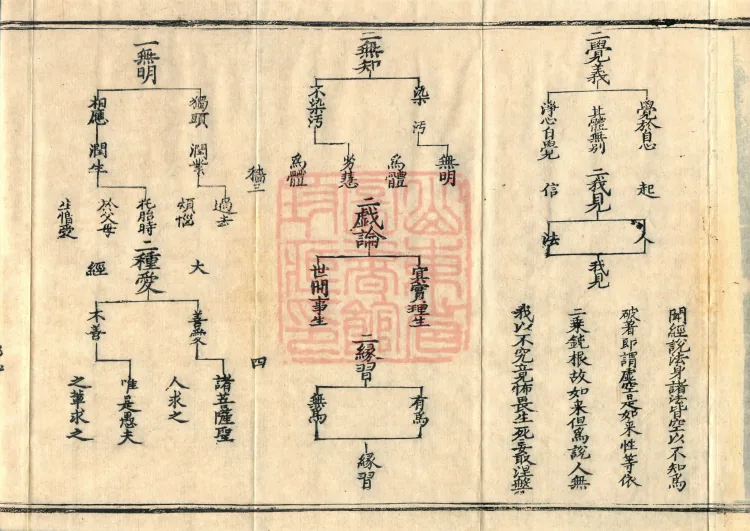 二覺義
覺於自心
起
其體無別
淨心自覺
信
二我見
人
法
我見
聞經說法身諸法皆空以不知為
破著即謂虛空是如來性等依
二乘鈍根故如来但為說人無
我以不究竟怖畏生死妄取涅槃
二無知
染
污
無明
為體
不染污
劣慧
為體
二戱論
真實理生
世間事生
二緣習
有為
無為
緣習
一無明
獨頭
潤業
過去
煩惱
相應
潤生
托胎時
於父母
生愔愛
大
經
四
二種愛
善愛
諸菩薩聖
人求之
不善
唯是愚夫
之輩求之